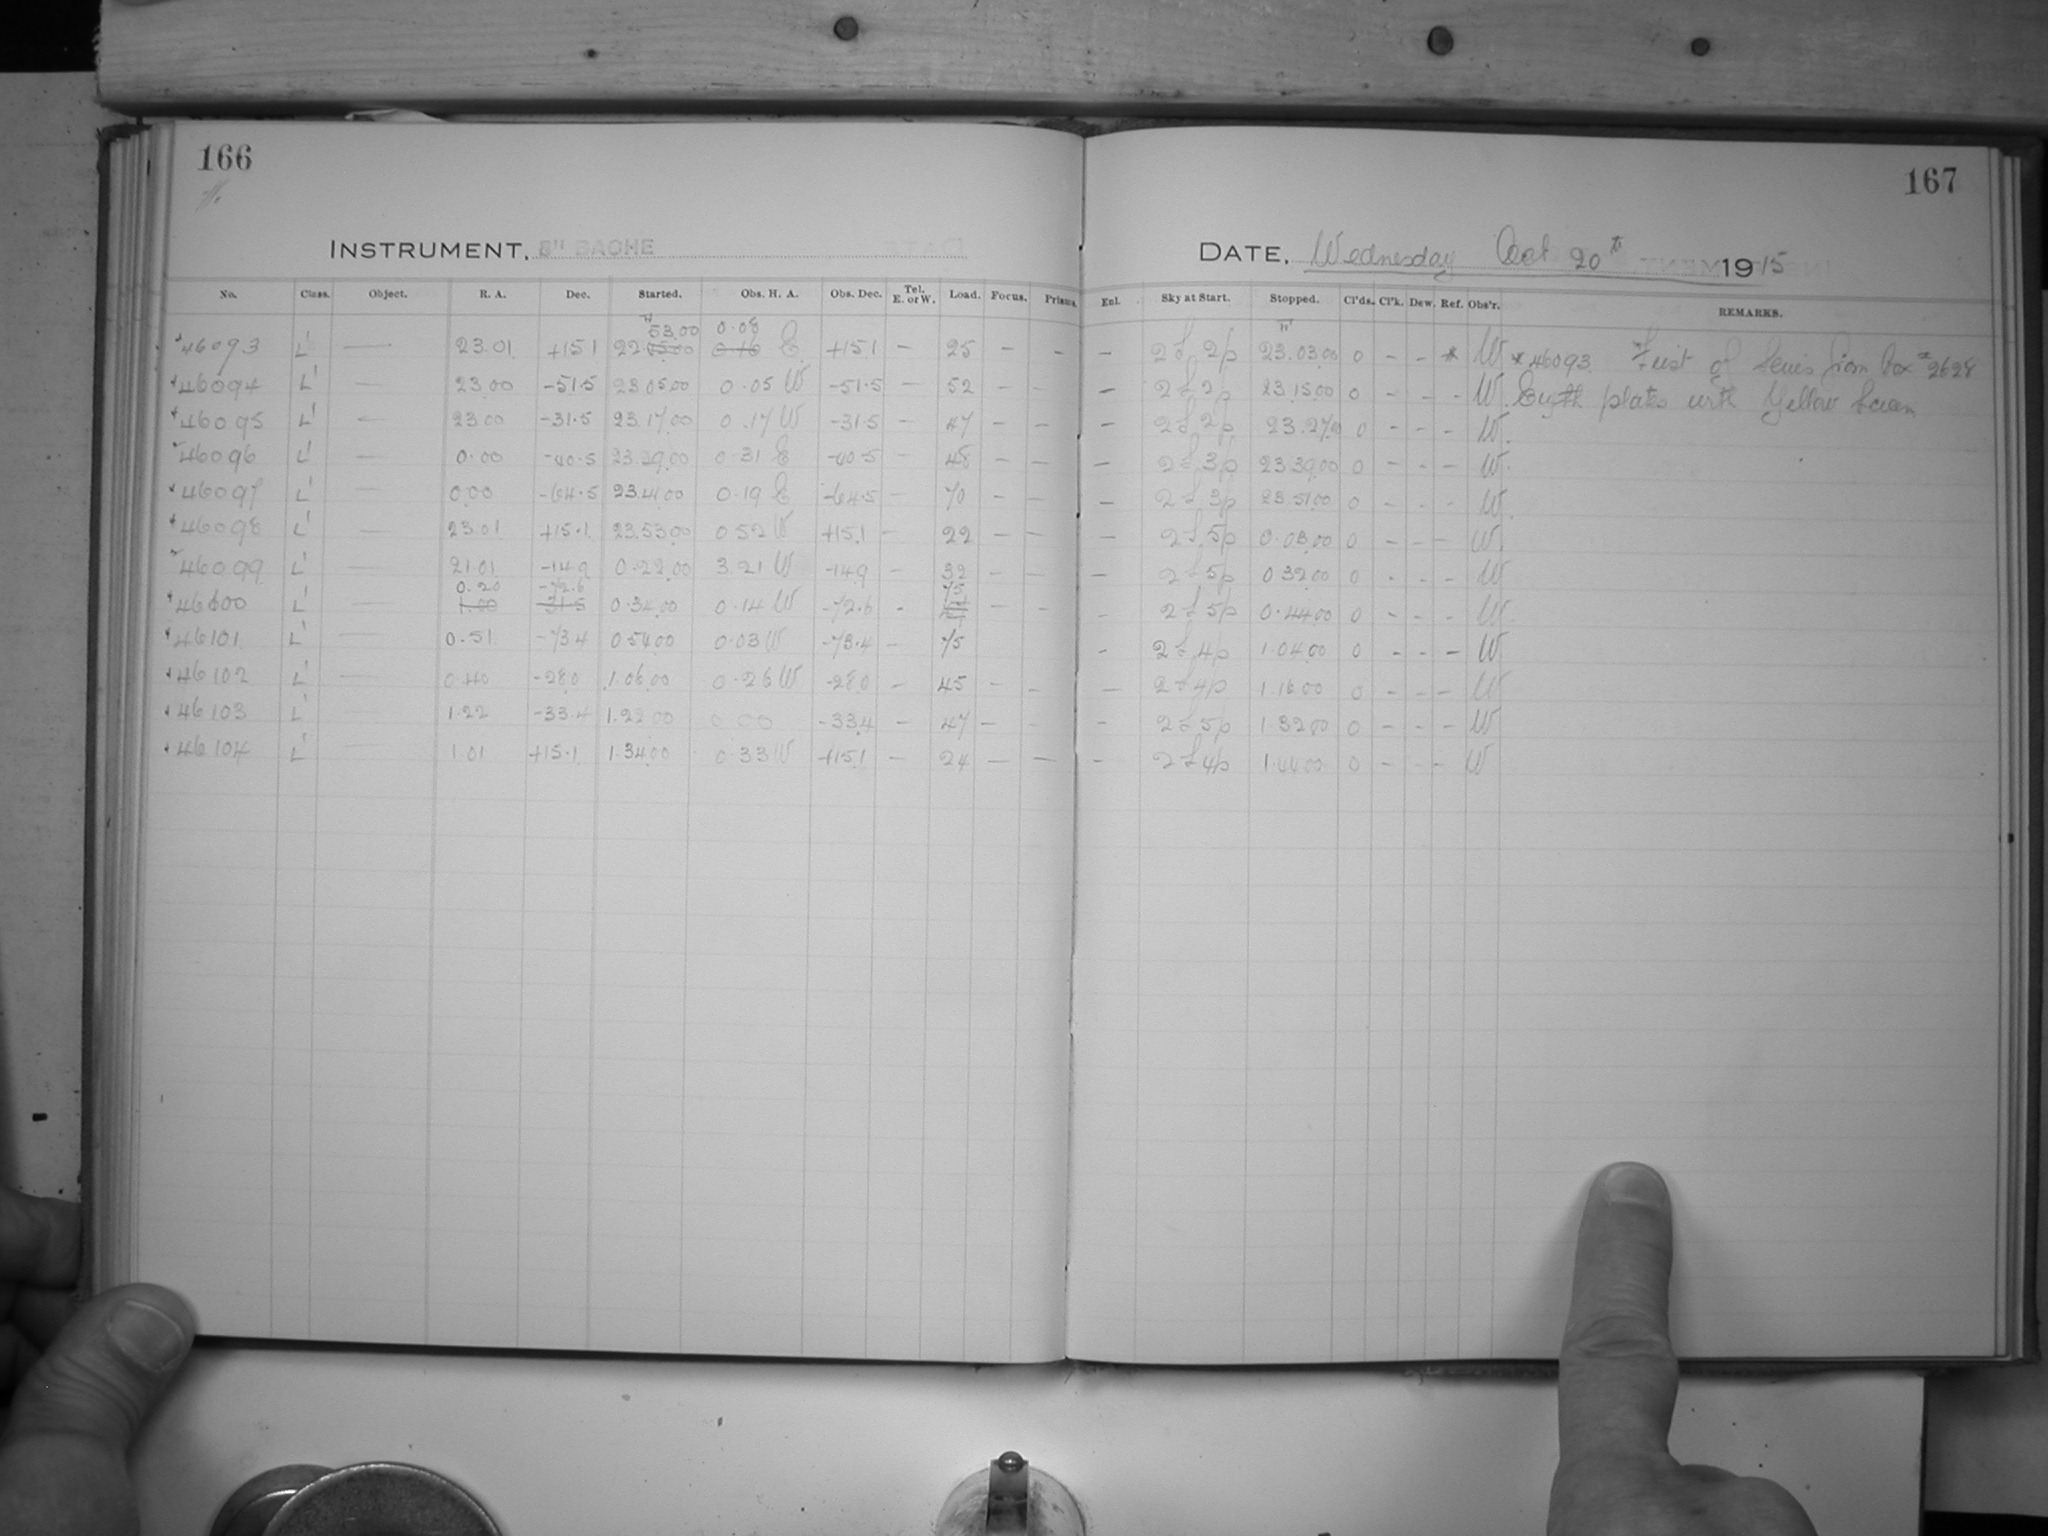 166
167
INSTRUMENT, 8" BACHE
DATE, Wednesday Oct 20th 1915
No. Class. Object. R. A. Dec. Started. Obs. H. A. Obs. Dec. Tel. E. or W. Load. Focus. Prisms. Enl. Sky at Start. Stopped. Cl'ds. Cl'k. Dew. Ref. Obs'r. REMARKS.
53.00 0.08
46093 L' — 23.01 +15.1 22.55.00 0.16 E +15.1 — 25 — — — 2 f 2p 23.03.00 0 - - * W * 46093 First of Series from box # 2628
46094 L' — 23.00 -51.5 23.05.00 0.05 W -51.5 — 52 — — — 2 f 2p 23.15.00 0 - - - W. Eighth plates with Yellow Screen
46095 L' — 23.00 -31.5 23.17.00 0.17 W -31.5 — 47 — — — 2 f 2p 23.27.00 0 - - - W.
46096 L' — 0.00 -40.5 23.29.00 0.31 E -40.5 — 48 — — — 2 f 3p 23.39.00 0 - - - W.
46097 L' — 0.00 -64.5 23.41.00 0.19 E -64.5 — 70 — — — 2 f 3p 23.51.00 0 - - - W.
46098 L' — 23.01 +15.1 23.53.00 0.52 W +15.1 — 22 — — — 2 f 5p 0.03.00 0 - - - W.
46099 L' — 21.01 -14.9 0.22.00 3.21 W -14.9 — 32 — — — 2 f 5p 0.32.00 0 - - - W
0.20 -72.6 75
46100 L' — 1.00 -31.5 0.34.00 0.14 W -72.6 - 47 - - — 2 f 5p 0.44.00 0 - - - W
46101 L' — 0.51 -73.4 0.54.00 0.03 W -73.4 — 75 - 2 f 4p 1.04.00 0 - - - W
46102 L' — 0.40 -28.0 1.06.00 0.26 W -28.0 — 45 — - — 2 f 4p 1.16.00 0 - - - W
46103 L' — 1.22 -33.4 1.22.00 0.00 -33.4 — 47 — - - 2 f 5p 1.32.00 0 - - - W
46104 L' — 1.01 +15.1 1.34.00 0.33 W +15.1 — 24 — — — 2 f 4p 1.44.00 0 - - - W